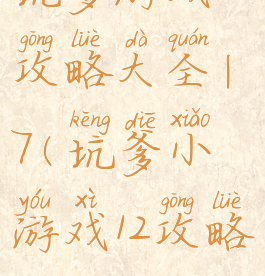 gōng lüè dà quán
攻略大全|
kēng diē xiǎo
7(坑爹小
yóu xì gōng lüè
游戏12攻略